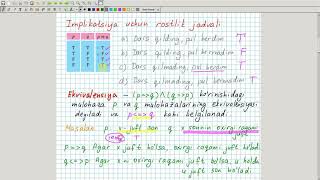 Implikatsiya uchun rostlik jadvali
p q p⇒q
a) Dars qilding, pul berdim T
b) Dars qilding, pul bermadim F
c) Dars qilmading, pul berdim T
d) Dars qilmading, pul bermadim T
Ekvivalensiya – (p=>q)∧(q=>p) ko'rinishidagi
mulohaza p va q mulohazalarning ekvivalensiyasi
deyiladi va p<=>q kabi belgilanadi.
Masalan p x juft son q x sonnin oxirgi raqami
p=>q Agar x juft bo'lsa, oxirgi raqami juft bo'ladi
q=>p Agar x ni oxirgi raqami juft bo'lsa, u holda